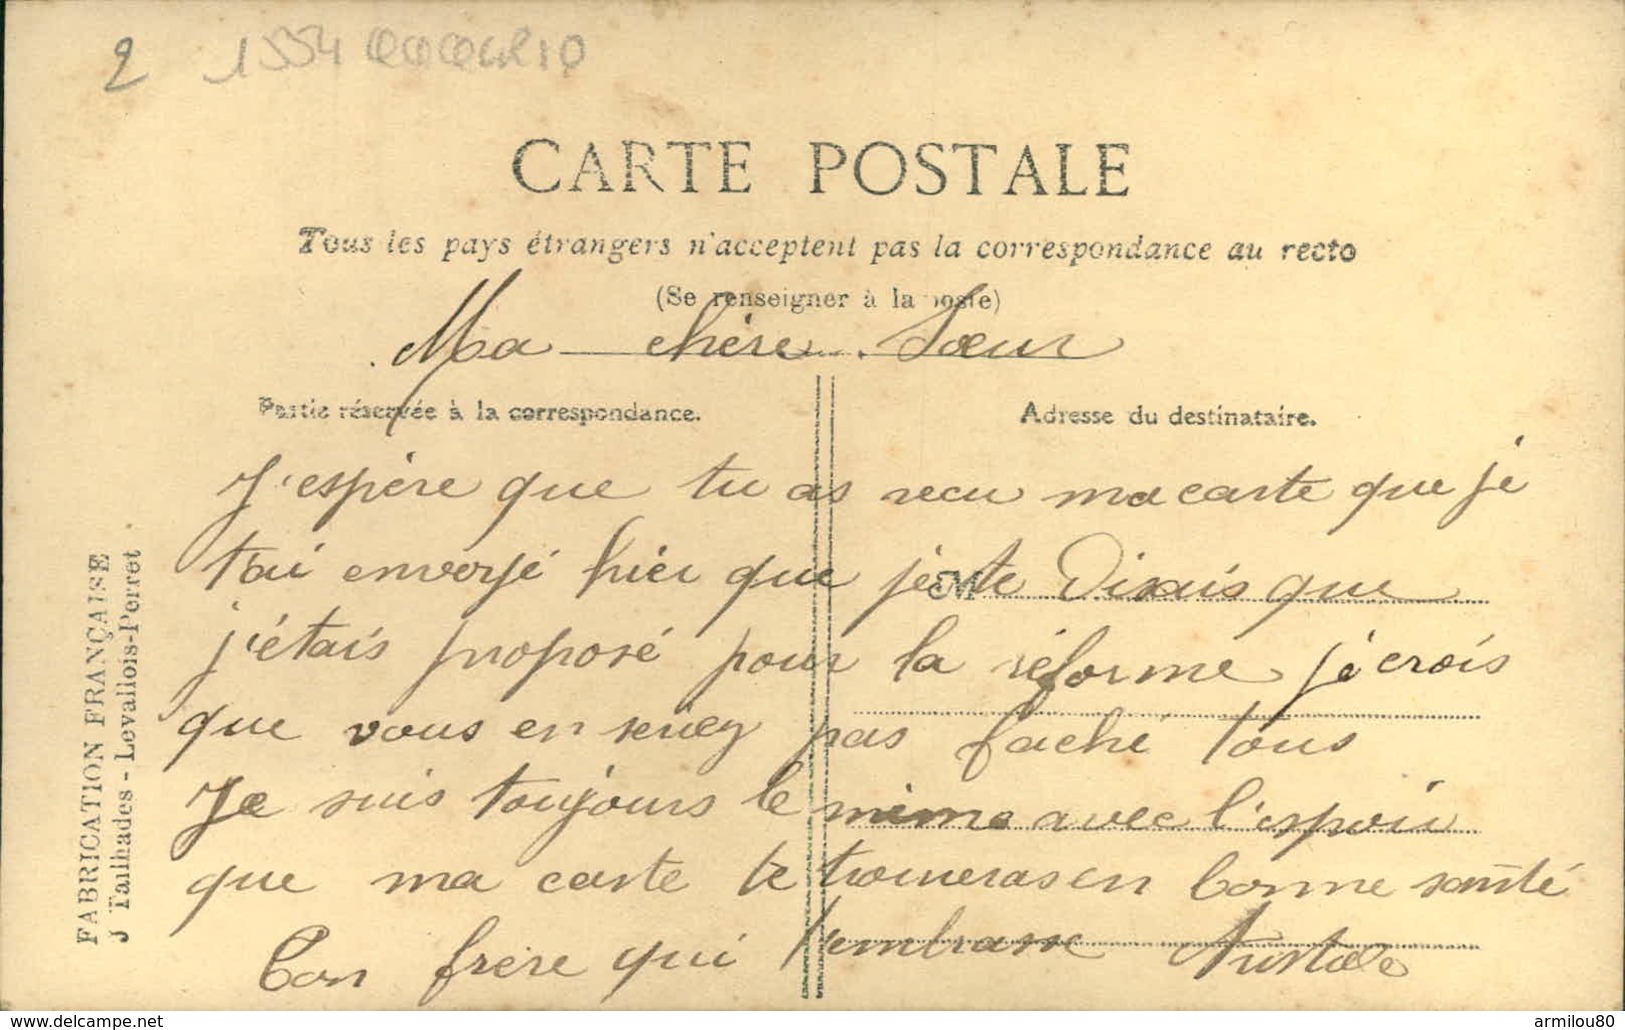 2
1554
CARTE POSTALE
Tous les pays étrangers n'acceptent pas la correspondance au recto
(Se renseigner à la poste)
Ma chère Sœur
Partie réservée à la correspondance.
Adresse du destinataire.
J'espère que tu as recu ma carte que je
t'ai envoyé hier que je te Disais que
M
j'étais proposé pour la réforme je crois
que vous en serez pas faché tous
Je suis toujours le même avec l'espoir
que ma carte te trouveras en bonne santé
Ton frère qui t'embrasse
FABRICATION FRANÇAISE
J Tailhades - Levallois-Perret
delcampe.net
armilou80